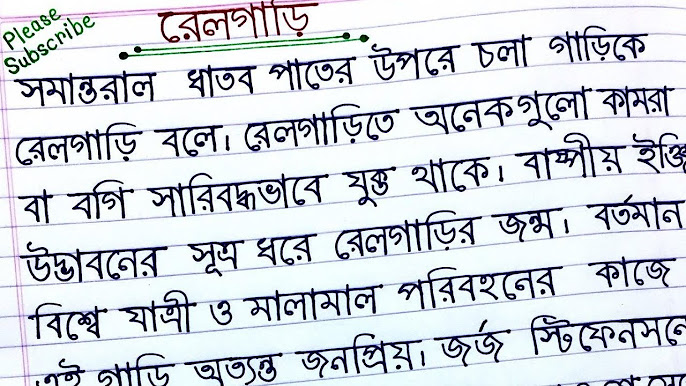 Please
Subscribe
রেলগাড়ি
সমান্তরাল ধাতব পাতের উপরে চলা গাড়িকে
রেলগাড়ি বলে। রেলগাড়িতে অনেকগুলো কামরা
বা বগি সারিবদ্ধভাবে যুক্ত থাকে। বাষ্পীয়
উদ্ভাবনের সূত্র ধরে রেলগাড়ির জন্ম। বর্তমান
বিশ্বে যাত্রী ও মালামাল পরিবহনের কাজে
এই গাড়ি অত্যন্ত জনপ্রিয়। জর্জ